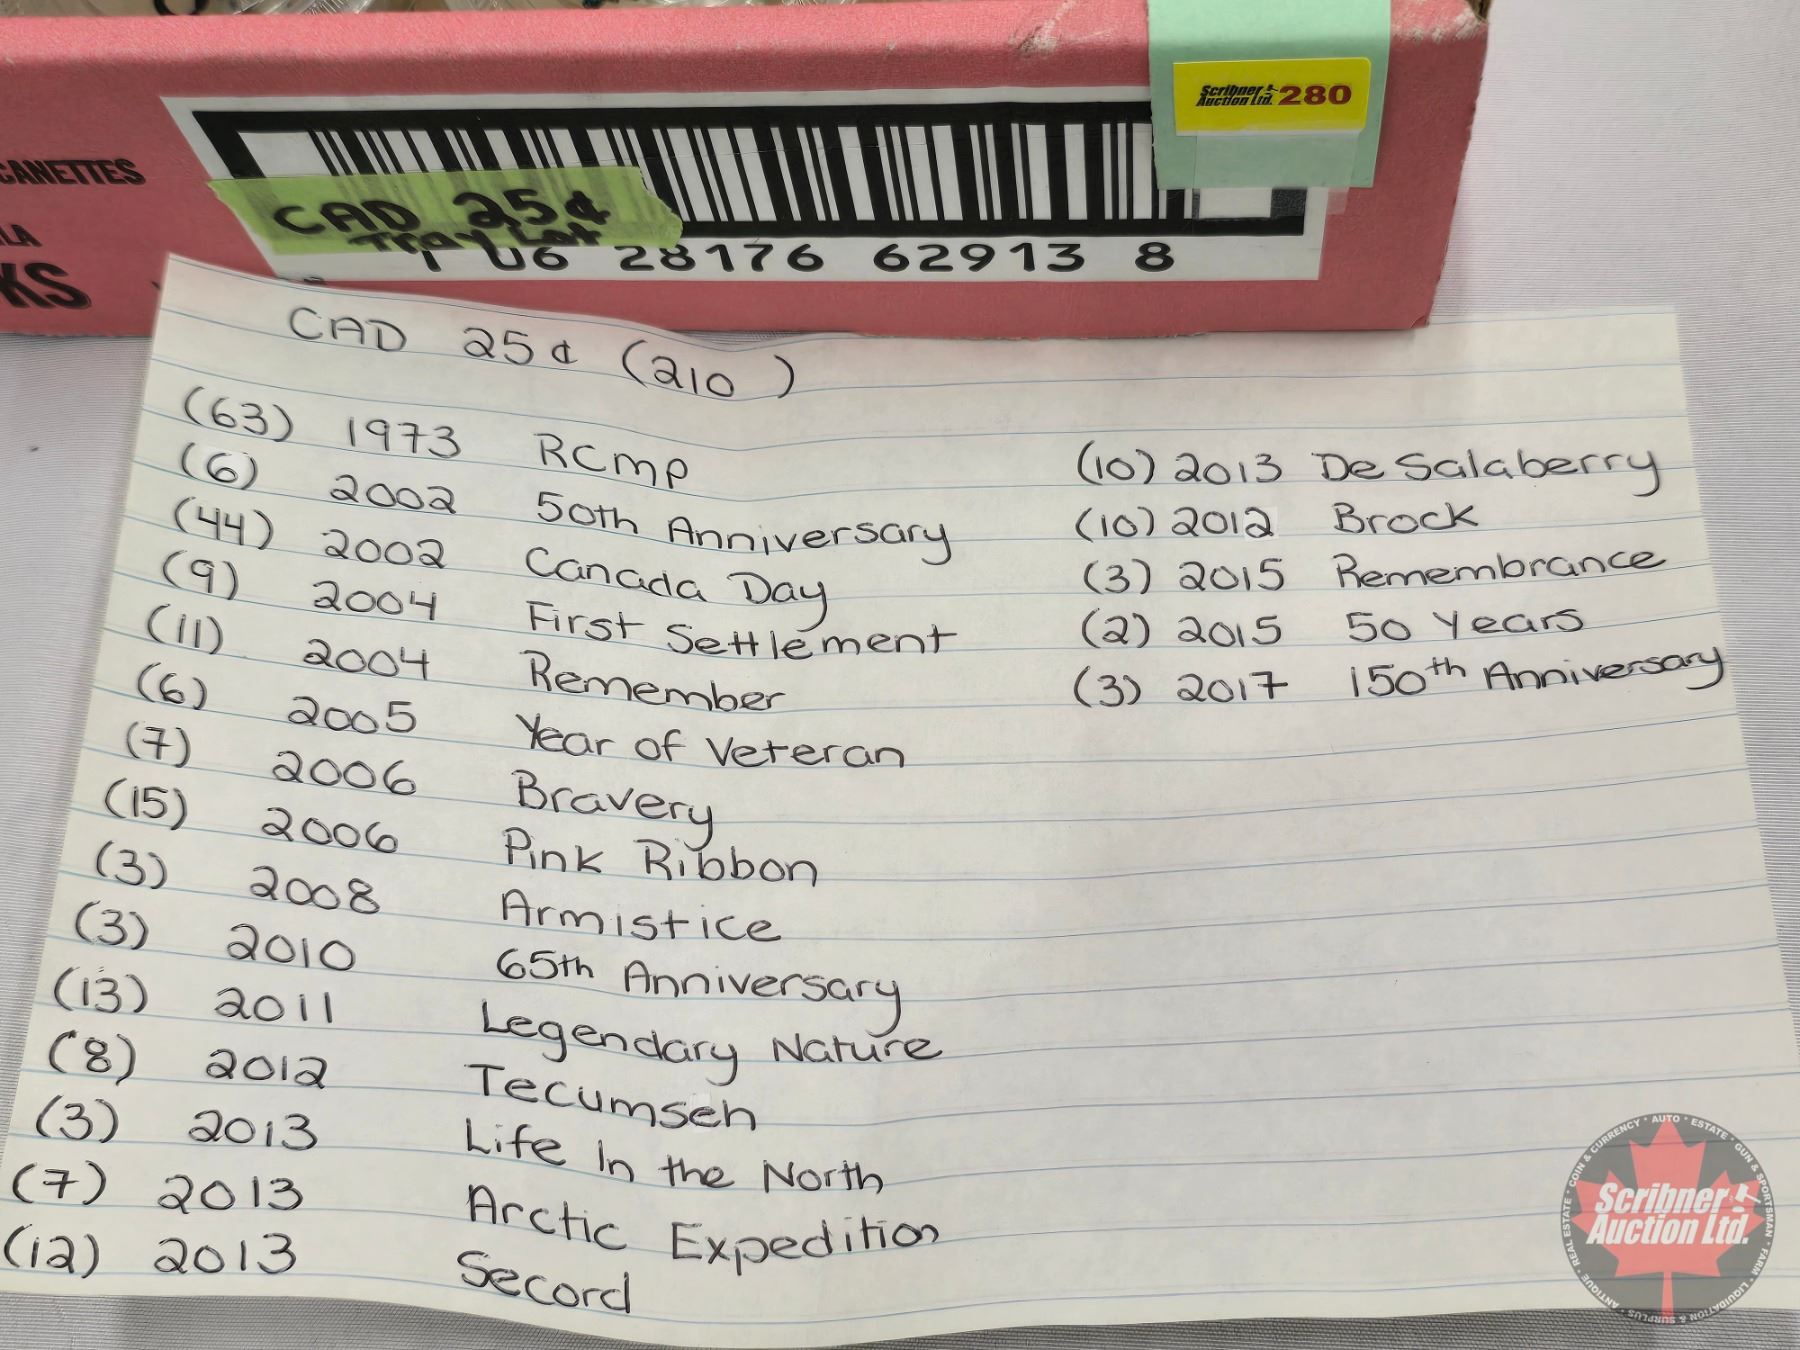 CANETTES
LA
KS
Scribner
Auction Ltd. 280
CAD 25¢
Tray Lot
1 06 28176 62913 8
CAD 25¢ (210)
(63) 1973 RCMP
(6) 2002 50th Anniversary
(44) 2002 Canada Day
(9) 2004 First Settlement
(11) 2004 Remember
(6) 2005 Year of Veteran
(7) 2006 Bravery
(15) 2006 Pink Ribbon
(3) 2008 Armistice
(3) 2010 65th Anniversary
(13) 2011 Legendary Nature
(8) 2012 Tecumseh
(3) 2013 Life In the North
(7) 2013 Arctic Expedition
(12) 2013 Secord
(10) 2013 De Salaberry
(10) 2012 Brock
(3) 2015 Remembrance
(2) 2015 50 Years
(3) 2017 150th Anniversary
Scribner
Auction Ltd.
ANTIQUE • REAL ESTATE • COIN & CURRENCY • AUTO • ESTATE • GUN & SPORTSMAN • FARM • LIQUIDATION & SURPLUS •